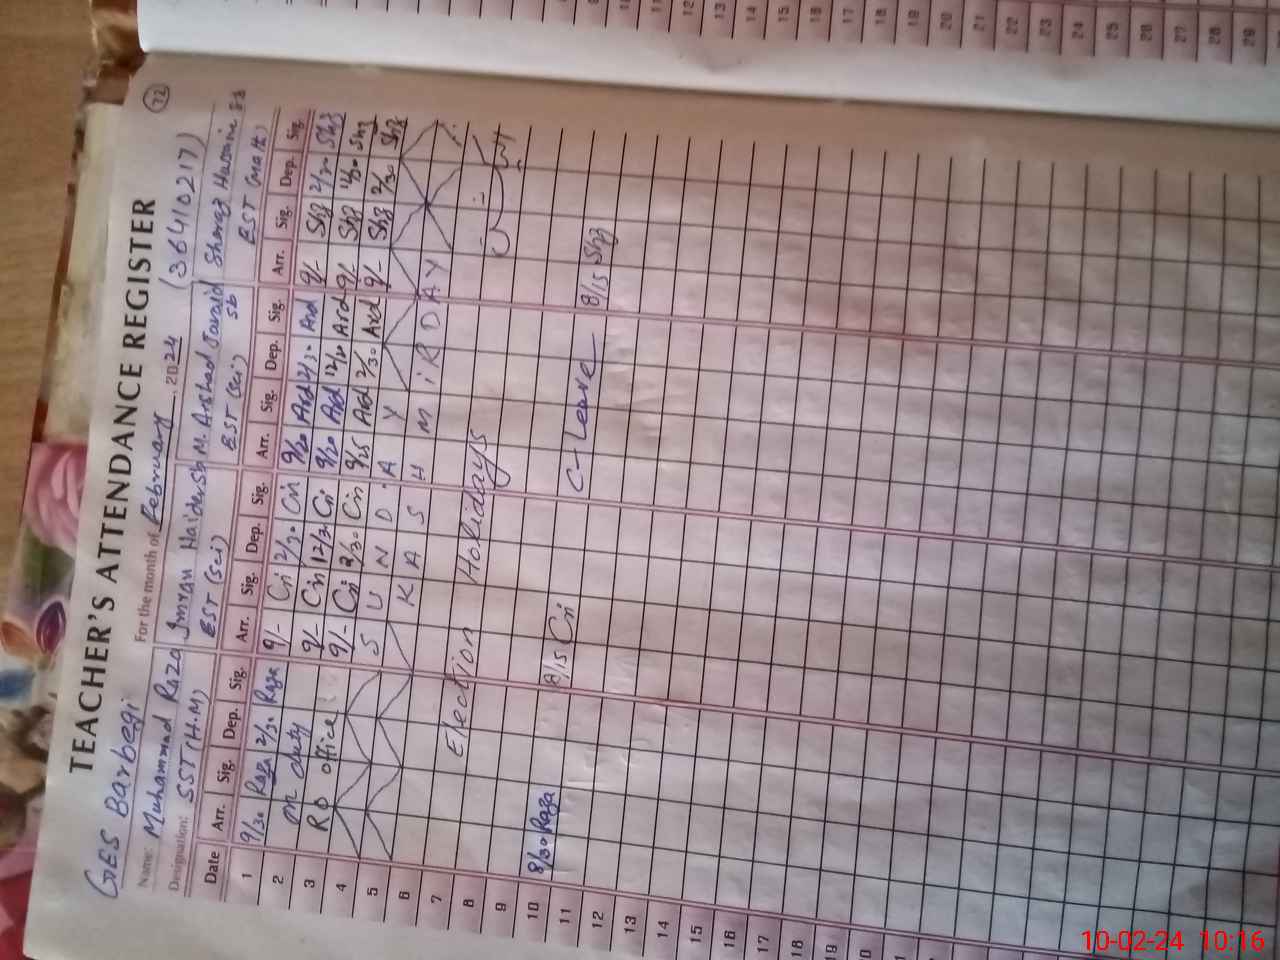 72
TEACHER'S ATTENDANCE REGISTER
GES Barbegi For the month of February, 2024 (36410217)
Name: Muhammad Raza Imran Haider sb M. Arshad Javaid sb Sheraz Hussain sb
Designation: SST (H.M) EST (Sci) EST (Sci) EST (Math)
Date Arr. Sig. Dep. Sig. Arr. Sig. Dep. Sig. Arr. Sig. Dep. Sig. Arr. Sig. Dep. Sig.
1 9/30 Raza 2/30 Raza 9/- 2/30 9/20 Ard 2/30 Ard 9/- Shz 2/30 Shz
2 on duty 9/- 12/30 9/20 Ard 12/30 Ard 9/- Shz 12/30 Shz
3 RO office 9/- 2/30 9/25 Ard 2/30 Ard 9/- Shz 2/30 Shz
4 SUNDAY
5 KASHMiR DAY
6
7 Election Holidays
8
9
10 8/30 Raza 8/15 C-Leave 8/15 Shz
11
12
13
14
15
16
17
18
19
20
21
12
13
14
15
16
17
18
19
20
21
22
23
24
25
26
27
28
29
10-02-24 10:16